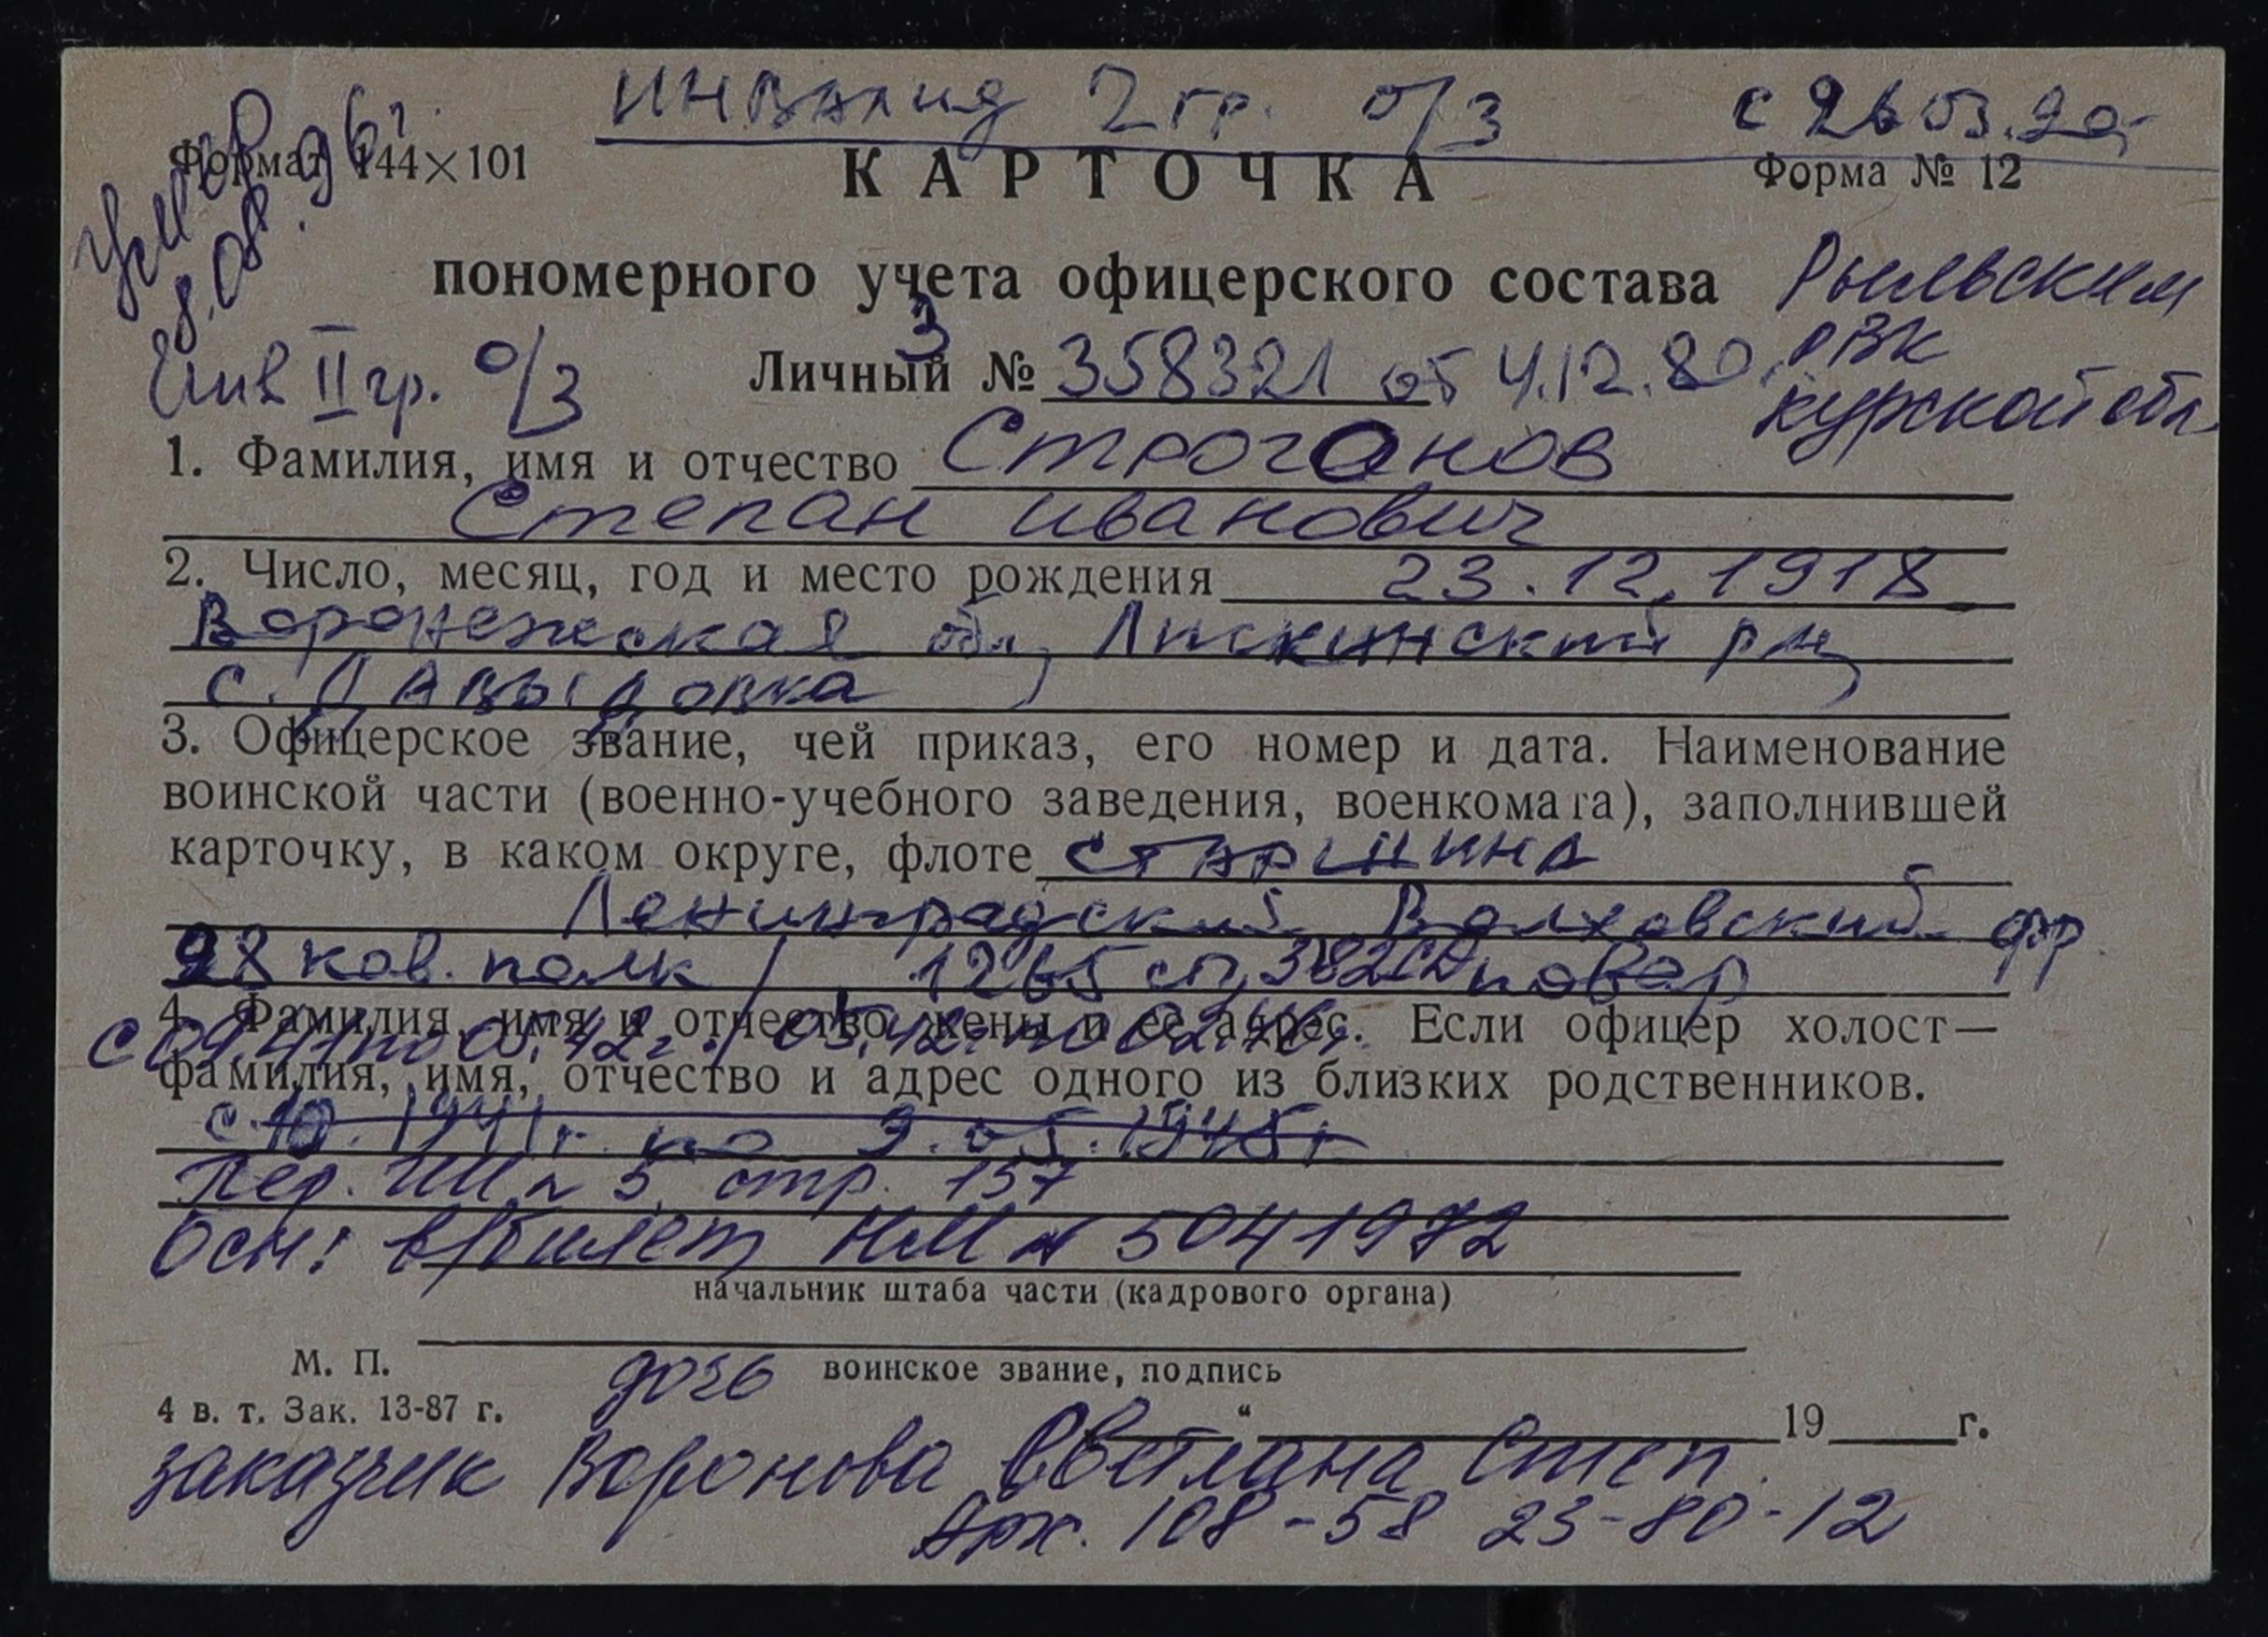 инвалид 2 гр. о/з с 26.03.92
умер 8.08.96г.
Формат 144×101
Форма № 12
КАРТОЧКА
пономерного учета офицерского состава
Рыльским
Инв II гр. о/з
Личный № 358321 от 4.12.80. РВК
З
Курской обл.
1. Фамилия, имя и отчество Строганов
Степан Иванович
2. Число, месяц, год и место рождения 23.12.1918
Воронежская обл, Лискинский р-н,
с. Давыдовка
3. Офицерское звание, чей приказ, его номер и дата. Наименование
воинской части (военно-учебного заведения, военкомата), заполнившей
карточку, в каком округе, флоте старшина
Ленинградский Волховский фр
98 кав. полк / 1265 сп, 382сд повар
4. Фамилия, имя и отчество жены и ее адрес. Если офицер холост—
с 09.41 по 05.42г. / 05.42г. по 02.46г.
фамилия, имя, отчество и адрес одного из близких родственников.
с 10.1941г. по 9.05.1945г
пер. ИИ № 5 стр. 157
Осн: в/билет НМ № 5041972
начальник штаба части (кадрового органа)
М. П.
дочь
воинское звание, подпись
4 в. т. Зак. 13-87 г.
“ 19 г.
заказчик Воронова Светлана Степ.
Арх. 108-58 23-80-12